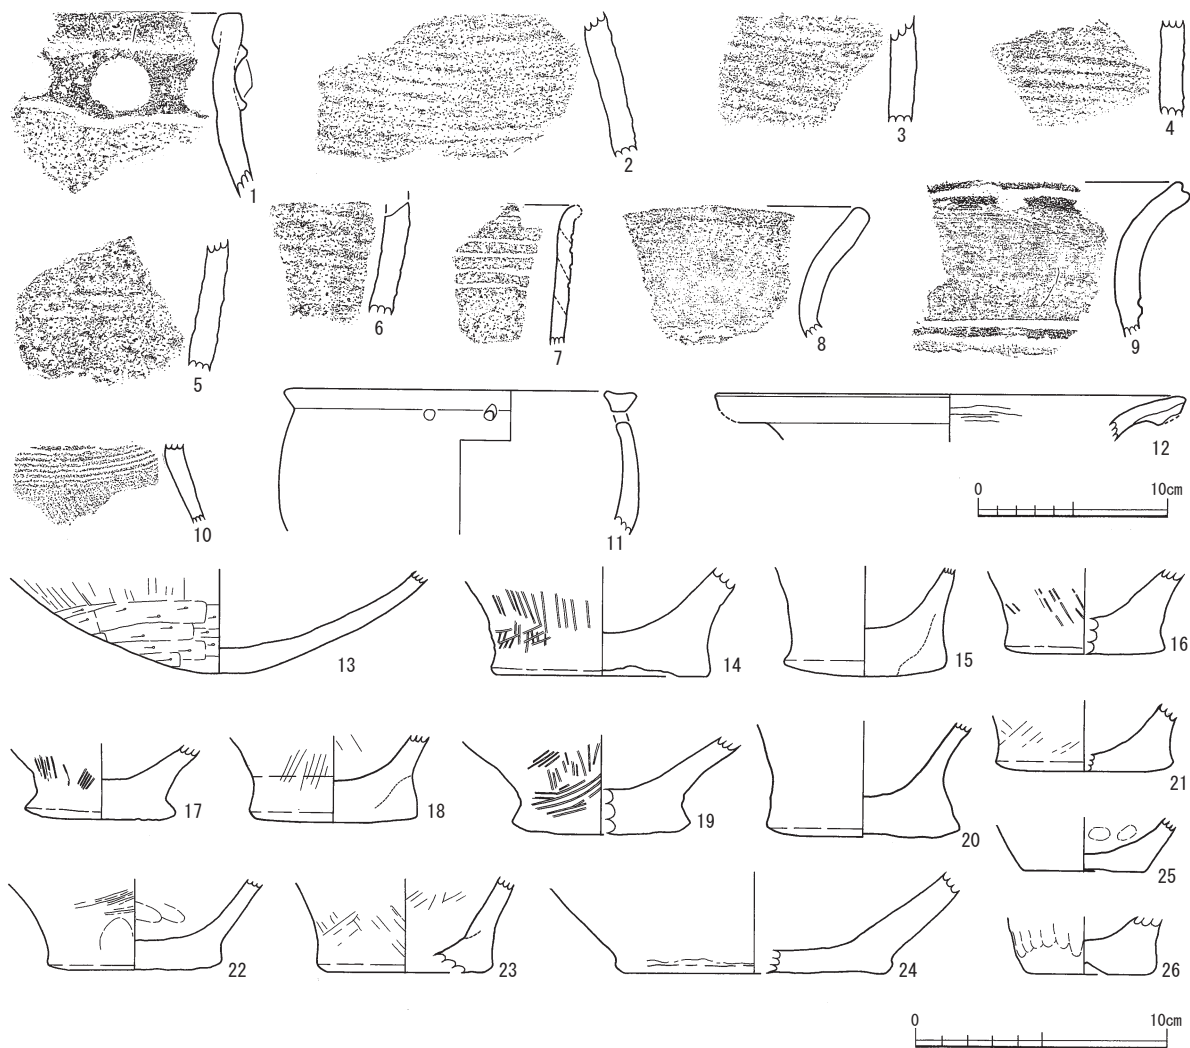 1
2
3
4
5
6
7
8
9
10
11
12
0 10cm
13
14
15
16
17
18
19
20
21
22
23
24
25
26
0 10cm